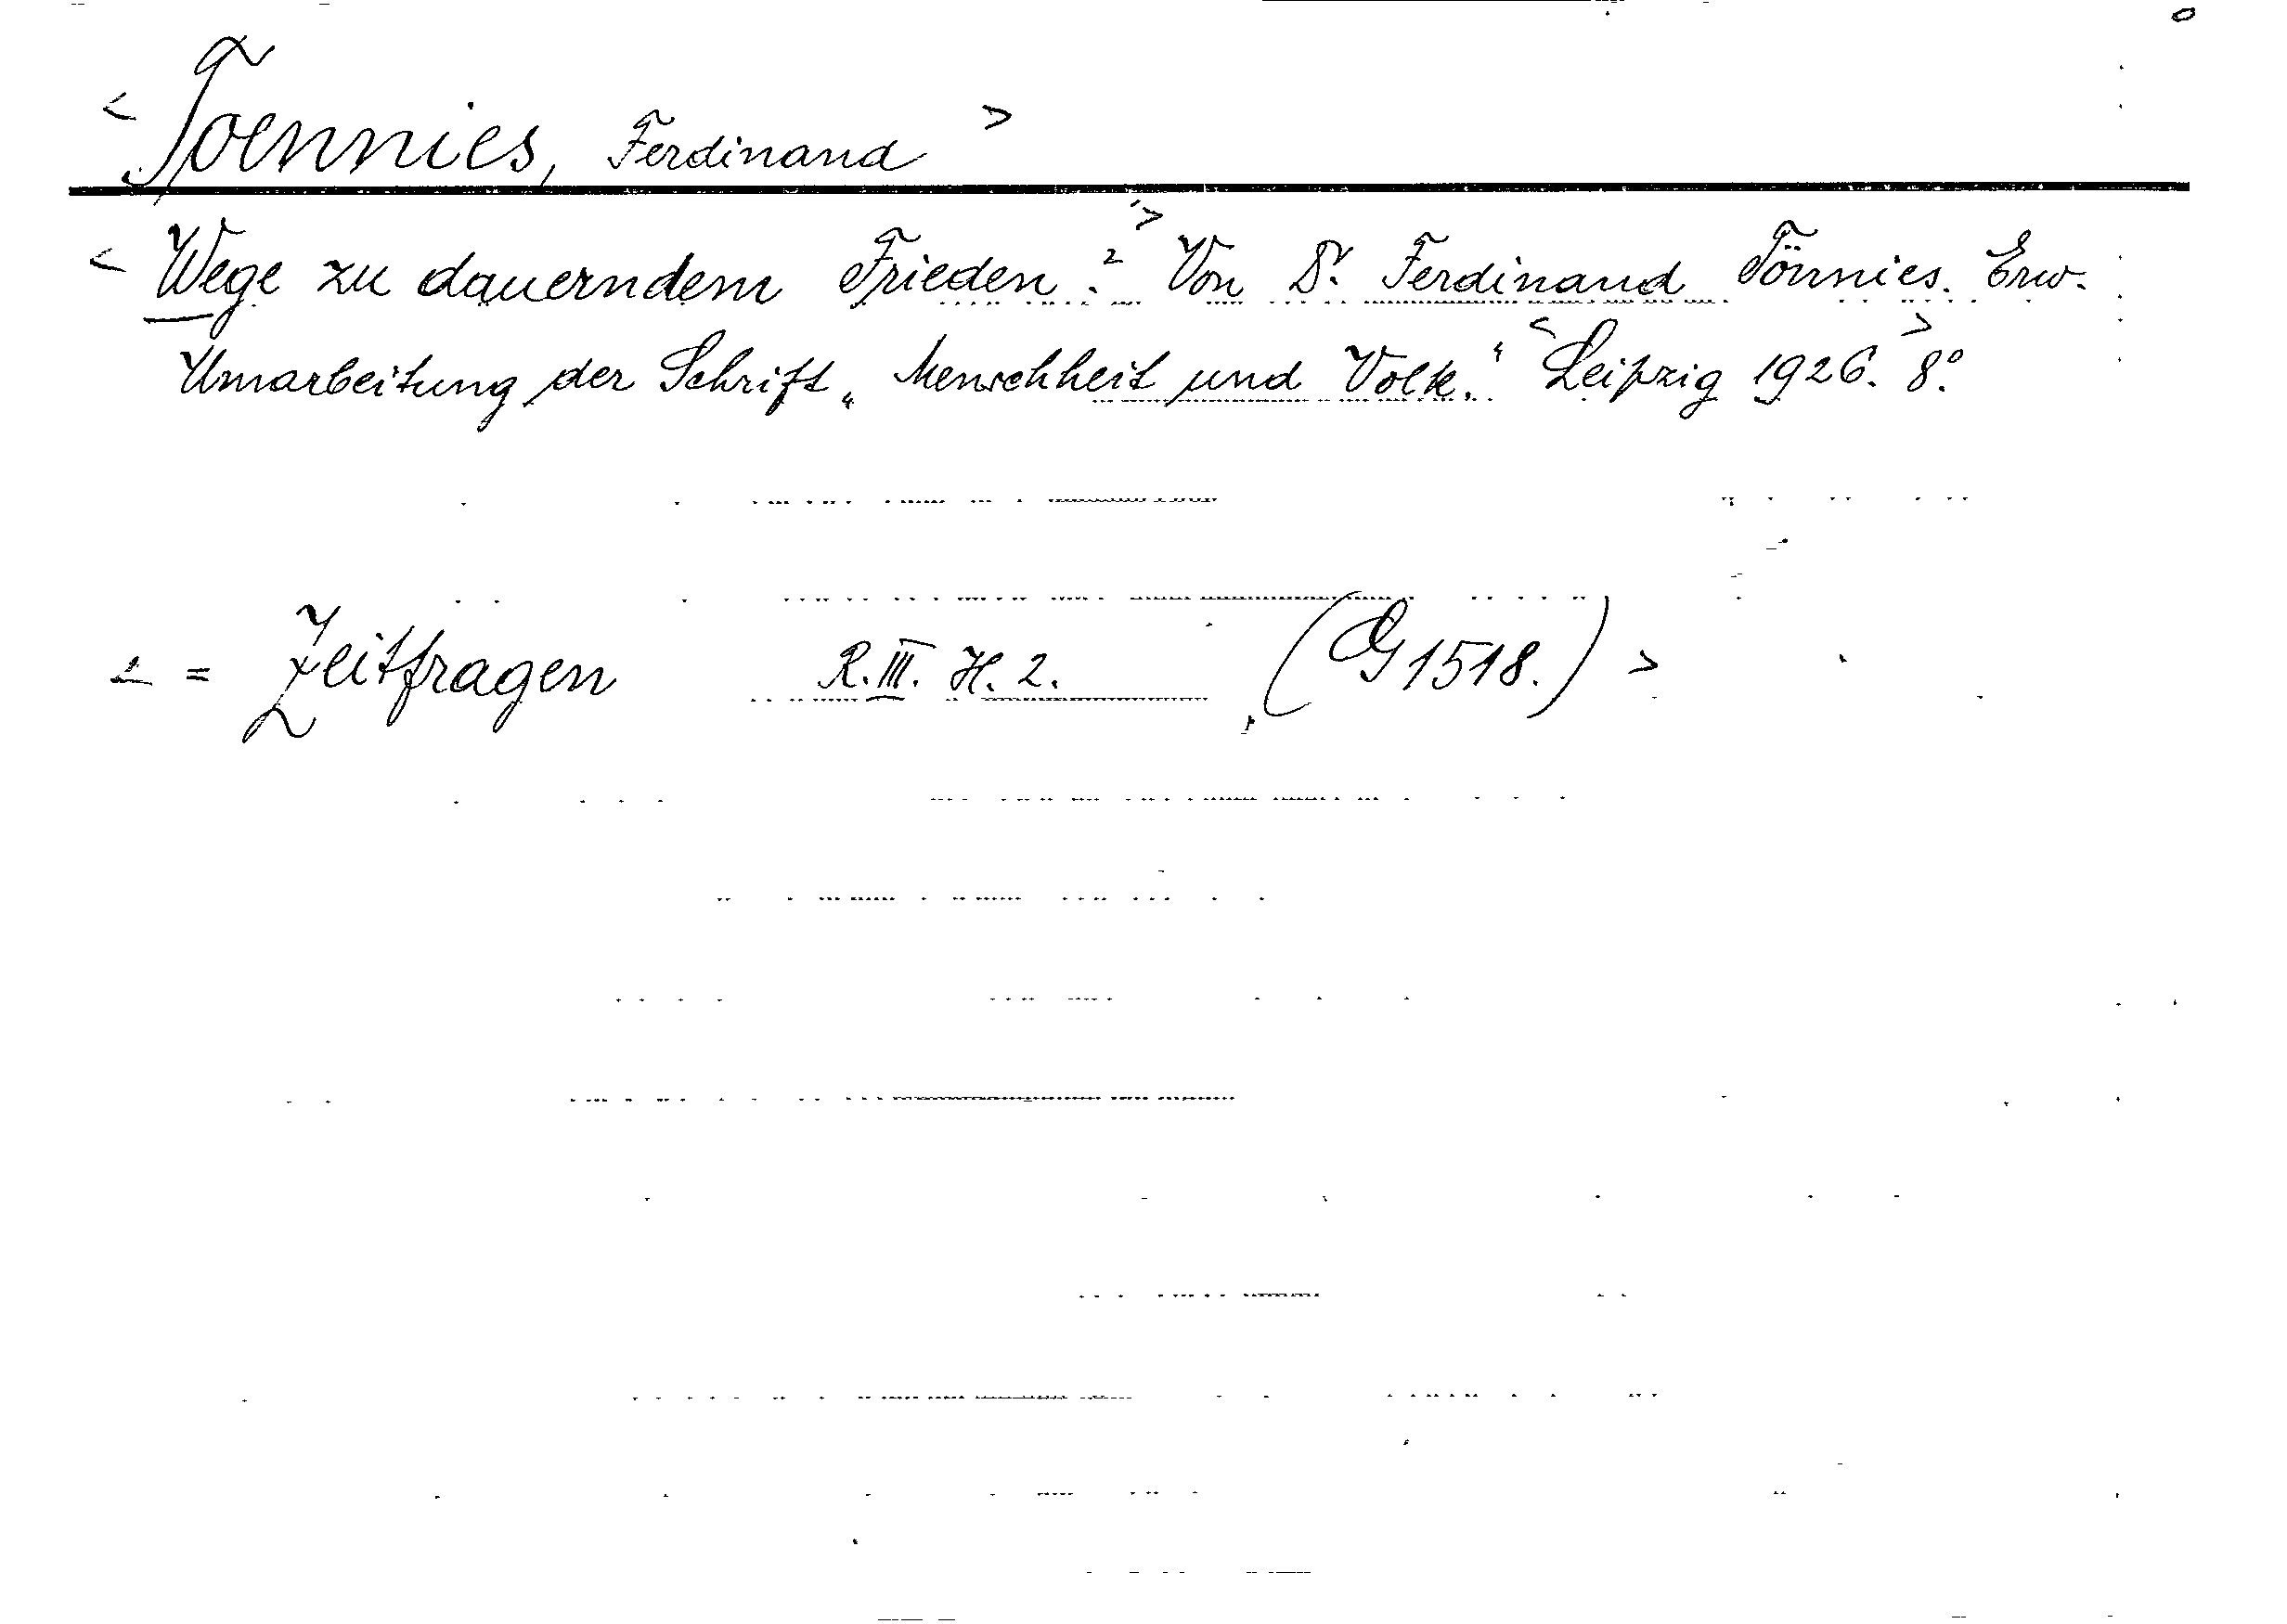 < Toennies, Ferdinand >
< Wege zu dauerndem Frieden? > Von Dr. Ferdinand Tönnies. Erw.
Umarbeitung der Schrift „Menschheit und Volk.“ < Leipzig 1926. > 8.°
< = Zeitfragen R. III. H. 2. (G 1518.) >